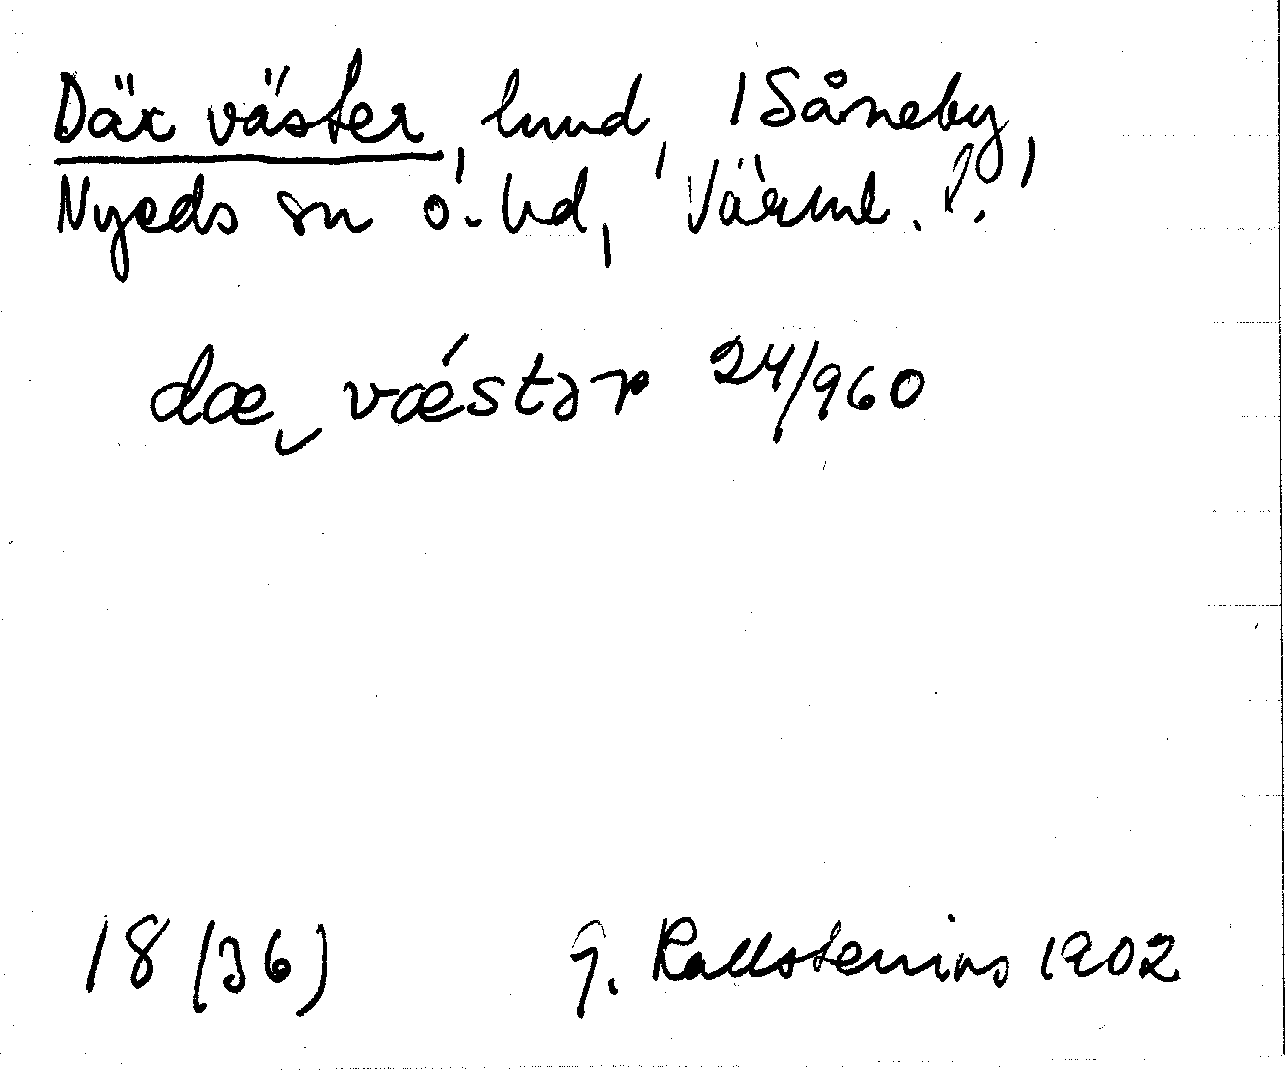 Där väster, lund, 1 Såneby,
Nyeds sn ö. hd, Värml. l.
dæ vǽstər 24/960
18 (36) G. Kallstenius 1902